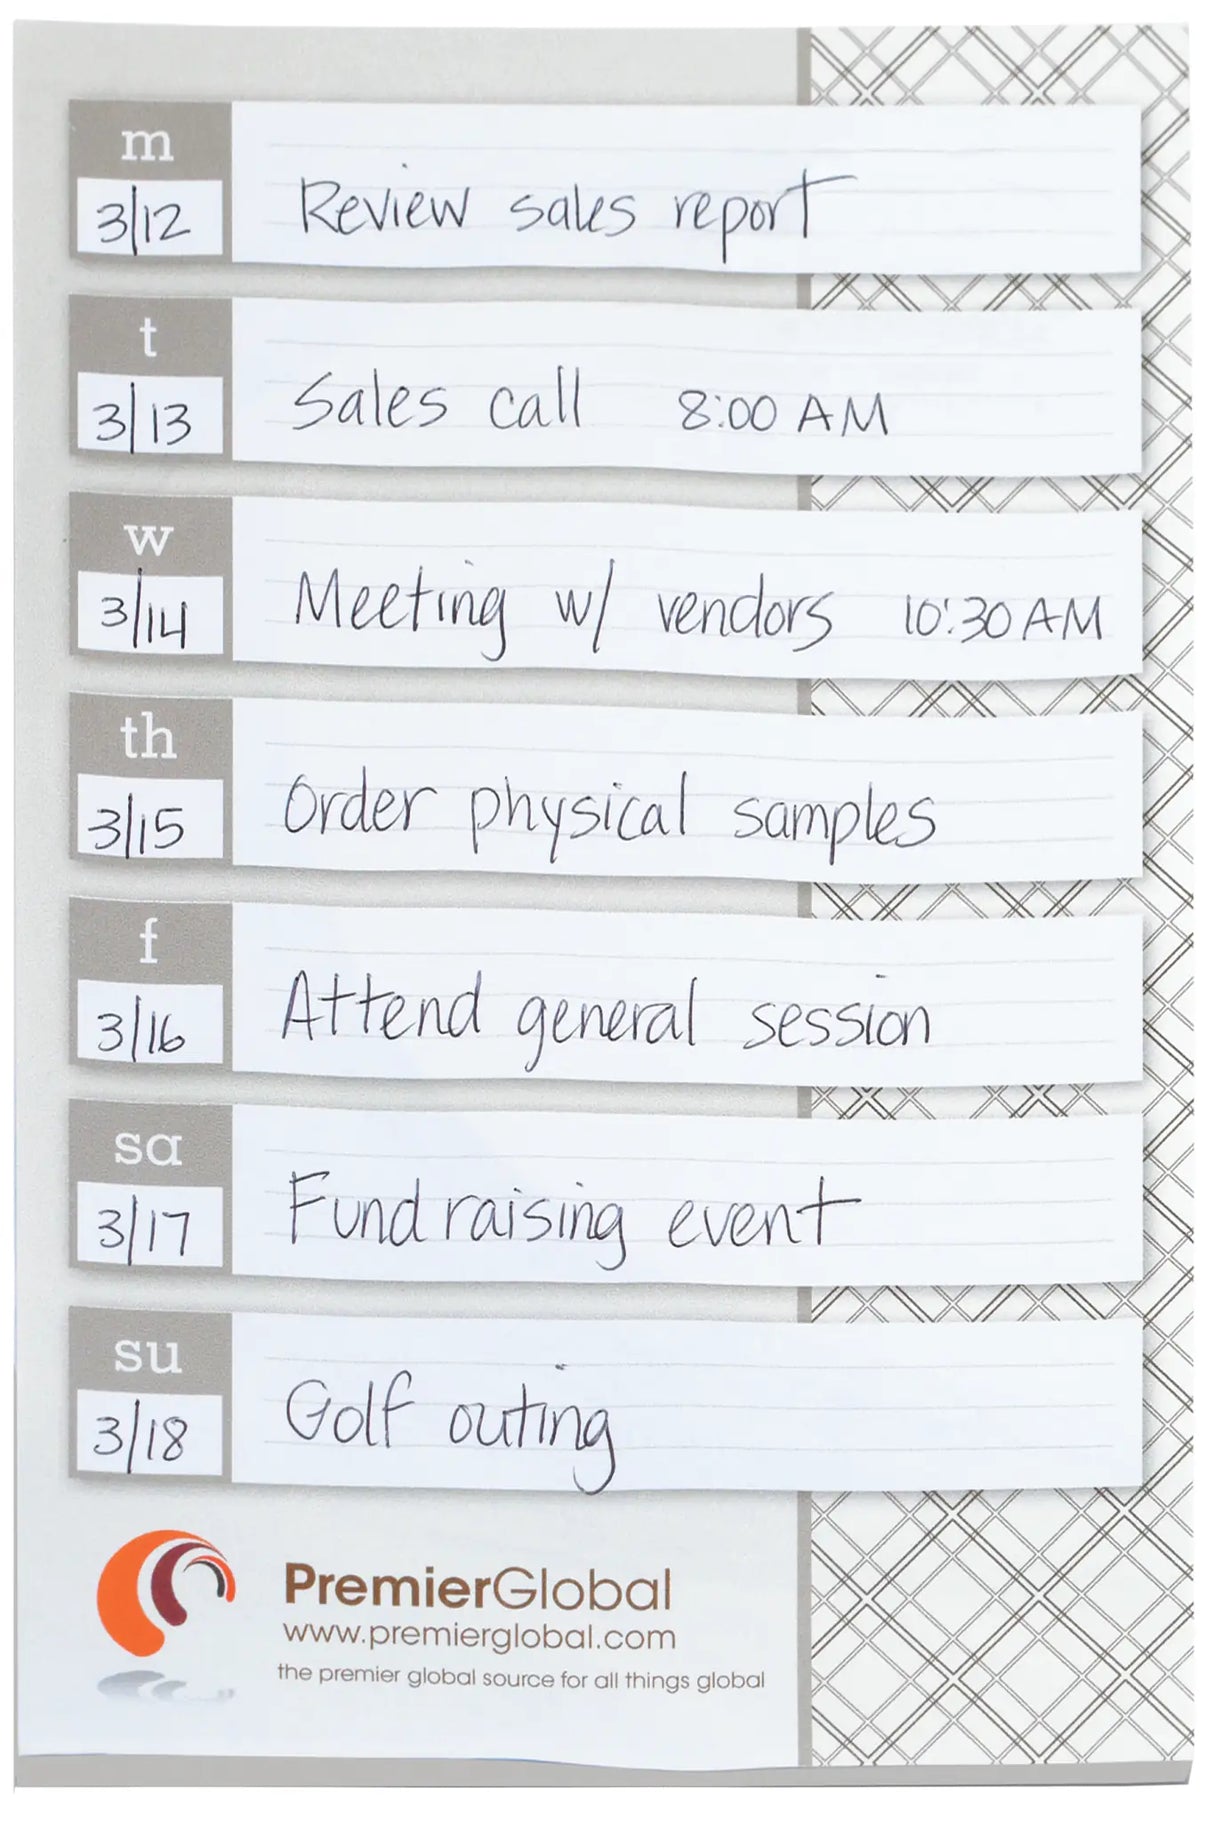 m
3/12 Review sales report
t
3/13 Sales call 8:00 AM
w
3/14 Meeting w/ vendors 10:30 AM
th
3/15 Order physical samples
f
3/16 Attend general session
sa
3/17 Fundraising event
su
3/18 Golf outing
PremierGlobal
www.premierglobal.com
the premier global source for all things global